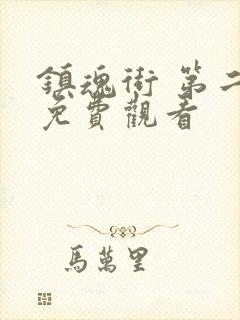 鎮魂街 第二
免費觀看
馬萬里